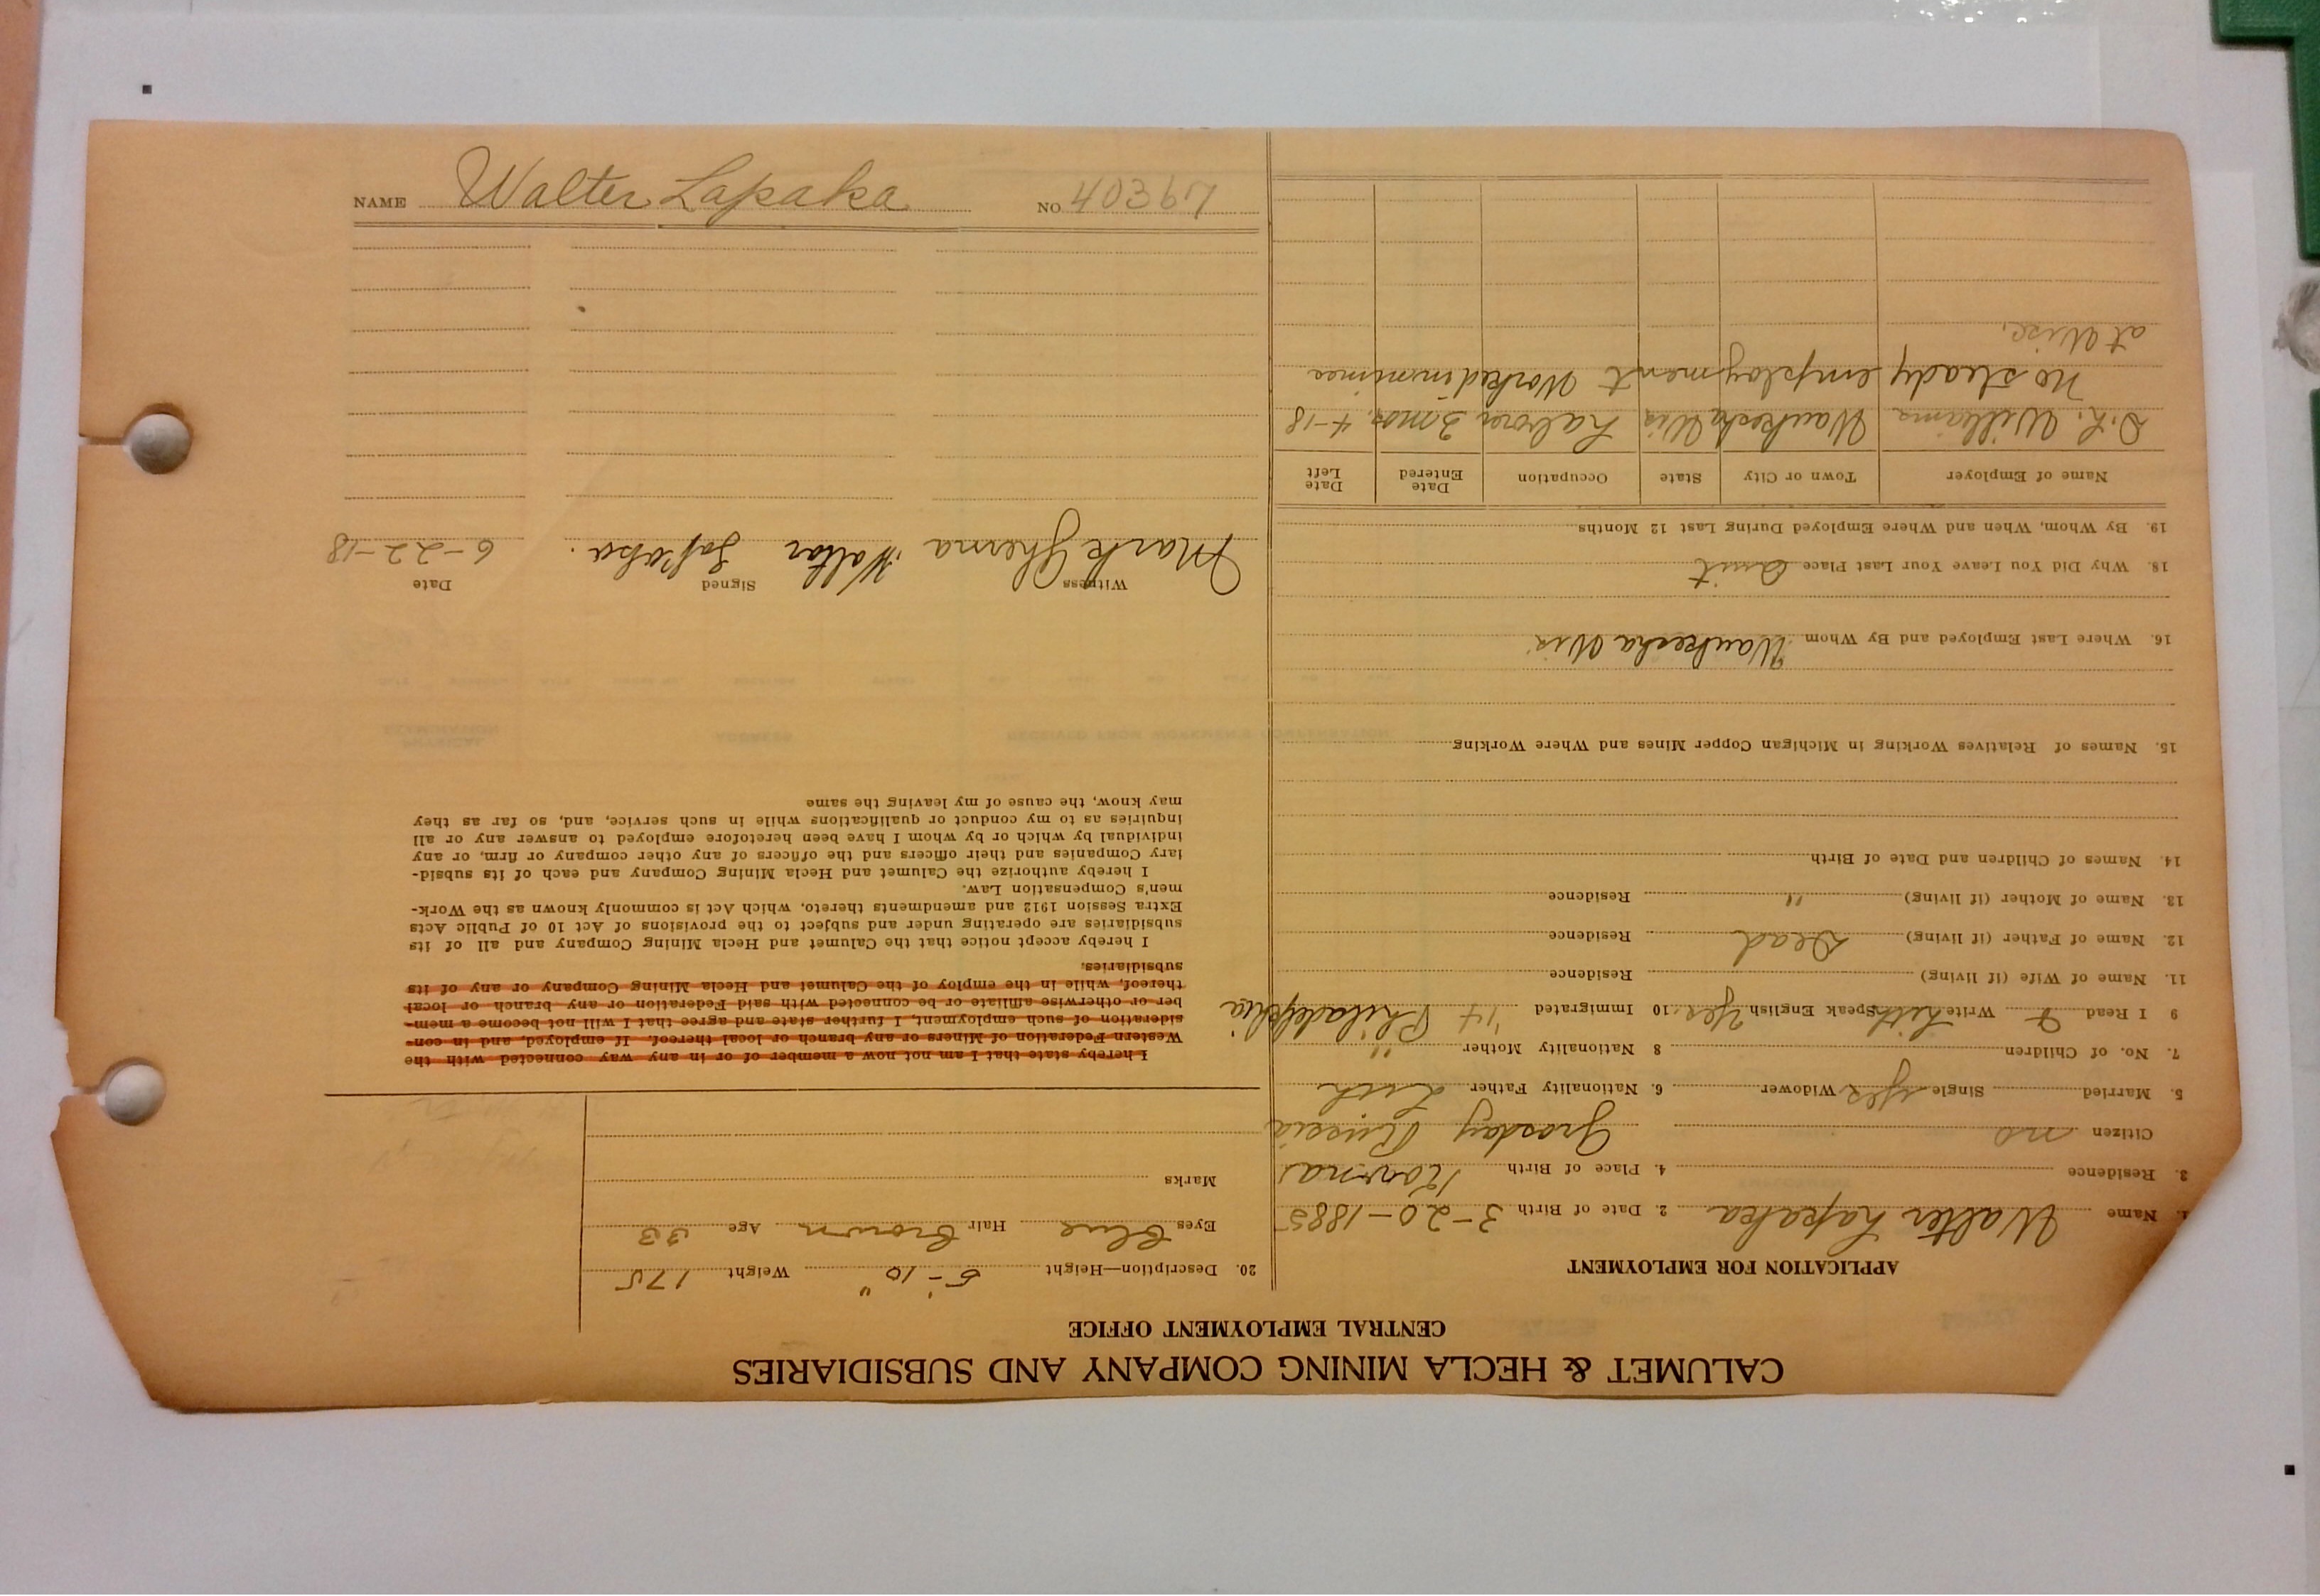 CALUMET & HECLA MINING COMPANY AND SUBSIDIARIES
CENTRAL EMPLOYMENT OFFICE
APPLICATION FOR EMPLOYMENT
1. Name Walter Lapaka 2. Date of Birth 3-20-1885
3. Residence 4. Place of Birth Kowna
Citizen no Grasday Russia
5. Married Single yes Widower 6. Nationality Father Lith
7. No. of Children 8 Nationality Mother "
9 I Read & Write Lith Speak English yes 10 Immigrated '14 Philadelphia
11. Name of Wife (if living) Residence
12. Name of Father (if living) Dead Residence
13. Name of Mother (if living) " Residence
14. Names of Children and Date of Birth
15. Names of Relatives Working in Michigan Copper Mines and Where Working
16. Where Last Employed and By Whom Waukesha Wis
18. Why Did You Leave Your Last Place Quit
19. By Whom, When and Where Employed During Last 12 Months
Name of Employer Town or City State Occupation Date Entered Date Left
D.L. Williams Waukesha Wis Labor 3 mos. 4-18
No steady employment Worked in mines
at Wisc.
20. Description—Height 5'-10" Weight 175
Eyes blue Hair brown Age 33
Marks
I hereby state that I am not now a member of or in any way connected with the
Western Federation of Miners or any branch or local thereof. If employed, and in con-
sideration of such employment, I further state and agree that I will not become a mem-
ber or otherwise affiliate or be connected with said Federation or any branch or local
thereof, while in the employ of the Calumet and Hecla Mining Company or any of its
subsidiaries.
I hereby accept notice that the Calumet and Hecla Mining Company and all of its
subsidiaries are operating under and subject to the provisions of Act 10 of Public Acts
Extra Session 1912 and amendments thereto, which Act is commonly known as the Work-
men's Compensation Law.
I hereby authorize the Calumet and Hecla Mining Company and each of its subsid-
iary Companies and their officers and the officers of any other company or firm, or any
individual by which or by whom I have been heretofore employed to answer any or all
inquiries as to my conduct or qualifications while in such service, and, so far as they
may know, the cause of my leaving the same
Witness Signed Date
Mark Gherna Walter Lapaka. 6-22-18
NAME Walter Lapaka NO 40367